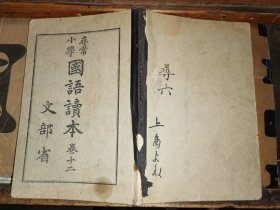 尋常
小學
國語讀本 卷十二
文部省
尋六